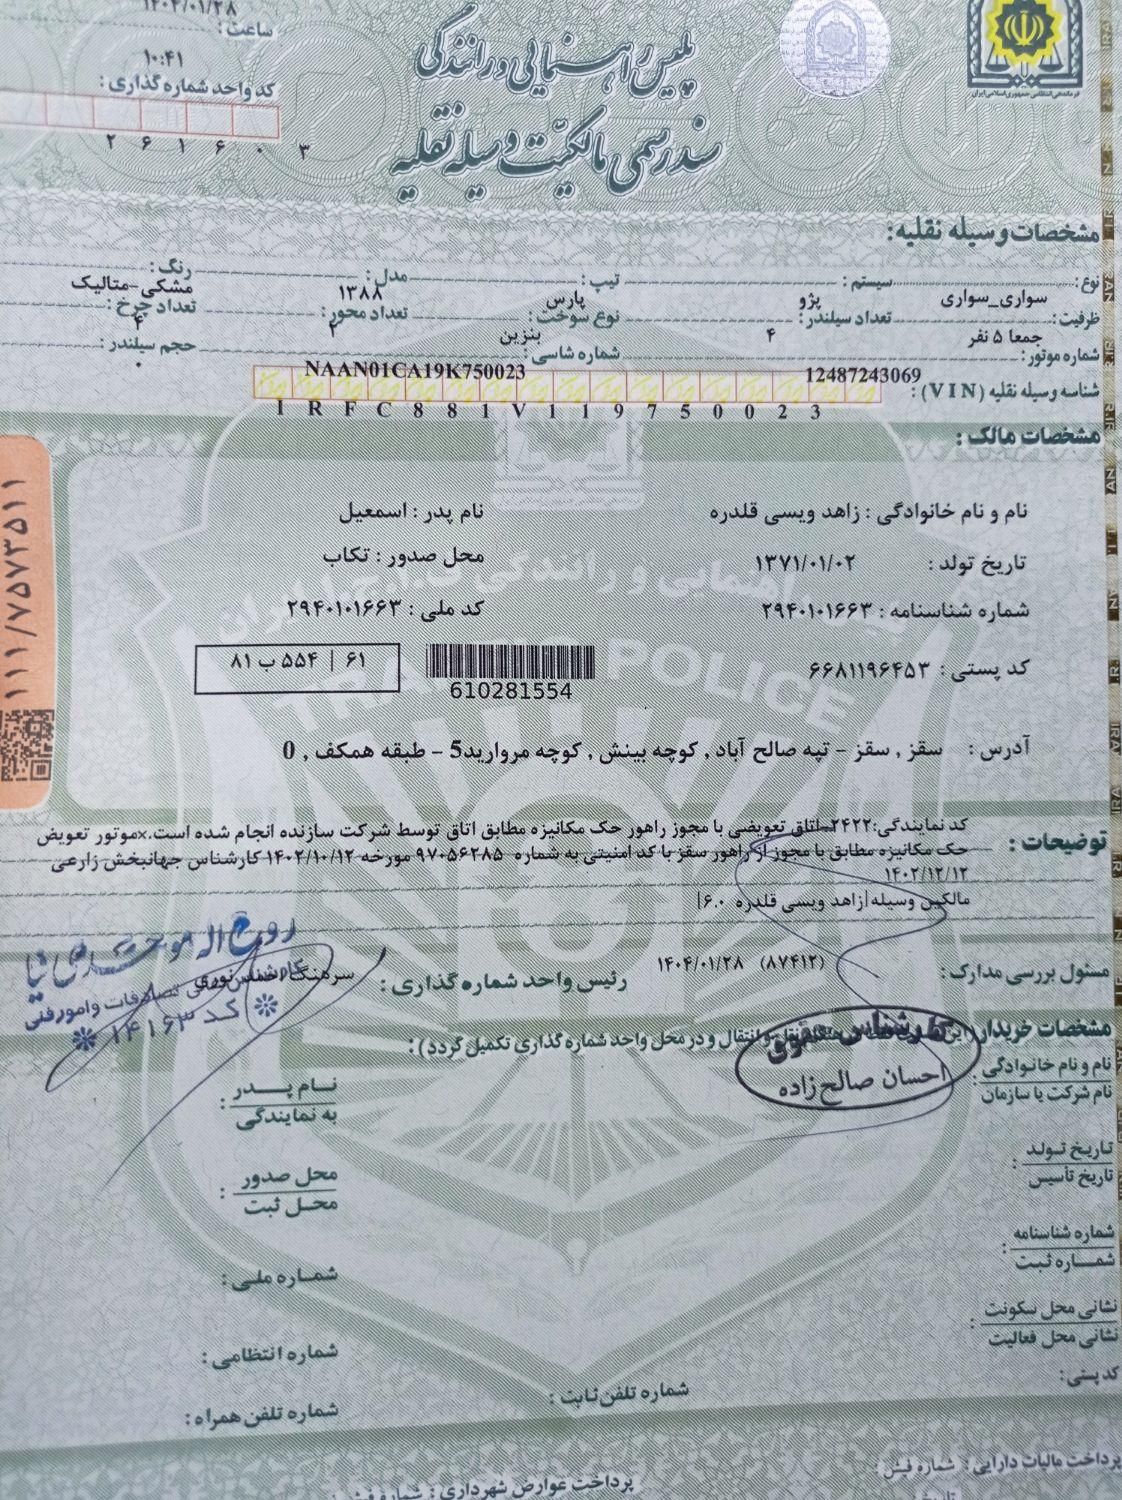 ۱۴۰۴/۰۱/۲۸
ساعت :
۱۰:۴۱
کد واحد شماره گذاری :
۲ ۶ ۱ ۶ ۰ ۳
پلیس راهنمایی و رانندگی
سند رسمی مالکیت وسیله نقلیه
فرماندهی انتظامی جمهوری اسلامی ایران
مشخصات وسیله نقلیه:
نوع: سواری_سواری سیستم : پژو تیپ: پارس مدل: ۱۳۸۸ رنگ: مشکی-متالیک
ظرفیت: جمعا ۵ نفر تعداد سیلندر: ۴ نوع سوخت : بنزین تعداد محور: ۲ تعداد چرخ : ۴
شماره موتور: 12487243069 شماره شاسی: NAAN01CA19K750023 حجم سیلندر: ۰
شناسه وسیله نقلیه (VIN) : I R F C 8 8 1 V 1 1 9 7 5 0 0 2 3
مشخصات مالک :
نام و نام خانوادگی : زاهد ویسی قلدره نام پدر : اسمعیل
تاریخ تولد : ۱۳۷۱/۰۱/۰۲ محل صدور : تکاب
شماره شناسنامه : ۲۹۴۰۱۰۱۶۶۳ کد ملی : ۲۹۴۰۱۰۱۶۶۳
کد پستی : ۶۶۸۱۱۹۶۴۵۳ 610281554 ۶۱ | ۵۵۴ ب ۸۱
آدرس : سقز , سقز - تپه صالح آباد , کوچه بینش , کوچه مروارید5 - طبقه همکف , 0
۱۱۱/۷۵۷۳۵۱۱
TRAFFIC POLICE
توضیحات : کد نمایندگی:۲۴۲۲-اتاق تعویضی با مجوز راهور حک مکانیزه مطابق اتاق توسط شرکت سازنده انجام شده است.×موتور تعویض
حک مکانیزه مطابق با مجوز از راهور سقز با کد امنیتی به شماره ۹۷۰۵۶۲۸۵ مورخه ۱۴۰۲/۱۰/۱۲ کارشناس جهانبخش زارعی
۱۴۰۲/۱۲/۱۲
مالکین وسیله|زاهد ویسی قلدره ۶.۰|
مسئول بررسی مدارک : (۸۷۴۱۲) ۱۴۰۴/۰۱/۲۸ رئیس واحد شماره گذاری : سرهنگ نوری
روح اله
تصادفات و امور فنی
کد ۱۴۱۶۳
کارشناس
احسان صالح زاده
مشخصات خریدار (این و انتقال و در محل واحد شماره گذاری تکمیل گردد) :
نام و نام خانوادگی نام پدر
نام شرکت یا سازمان : به نمایندگی :
تاریخ تولد محل صدور
تاریخ تأسیس : محل ثبت :
شماره شناسنامه
شماره ثبت : شماره ملی :
نشانی محل سکونت
نشانی محل فعالیت : شماره انتظامی :
کد پستی : شماره تلفن ثابت : شماره تلفن همراه :
پرداخت مالیات دارایی : شماره فیش : پرداخت عوارض شهرداری :